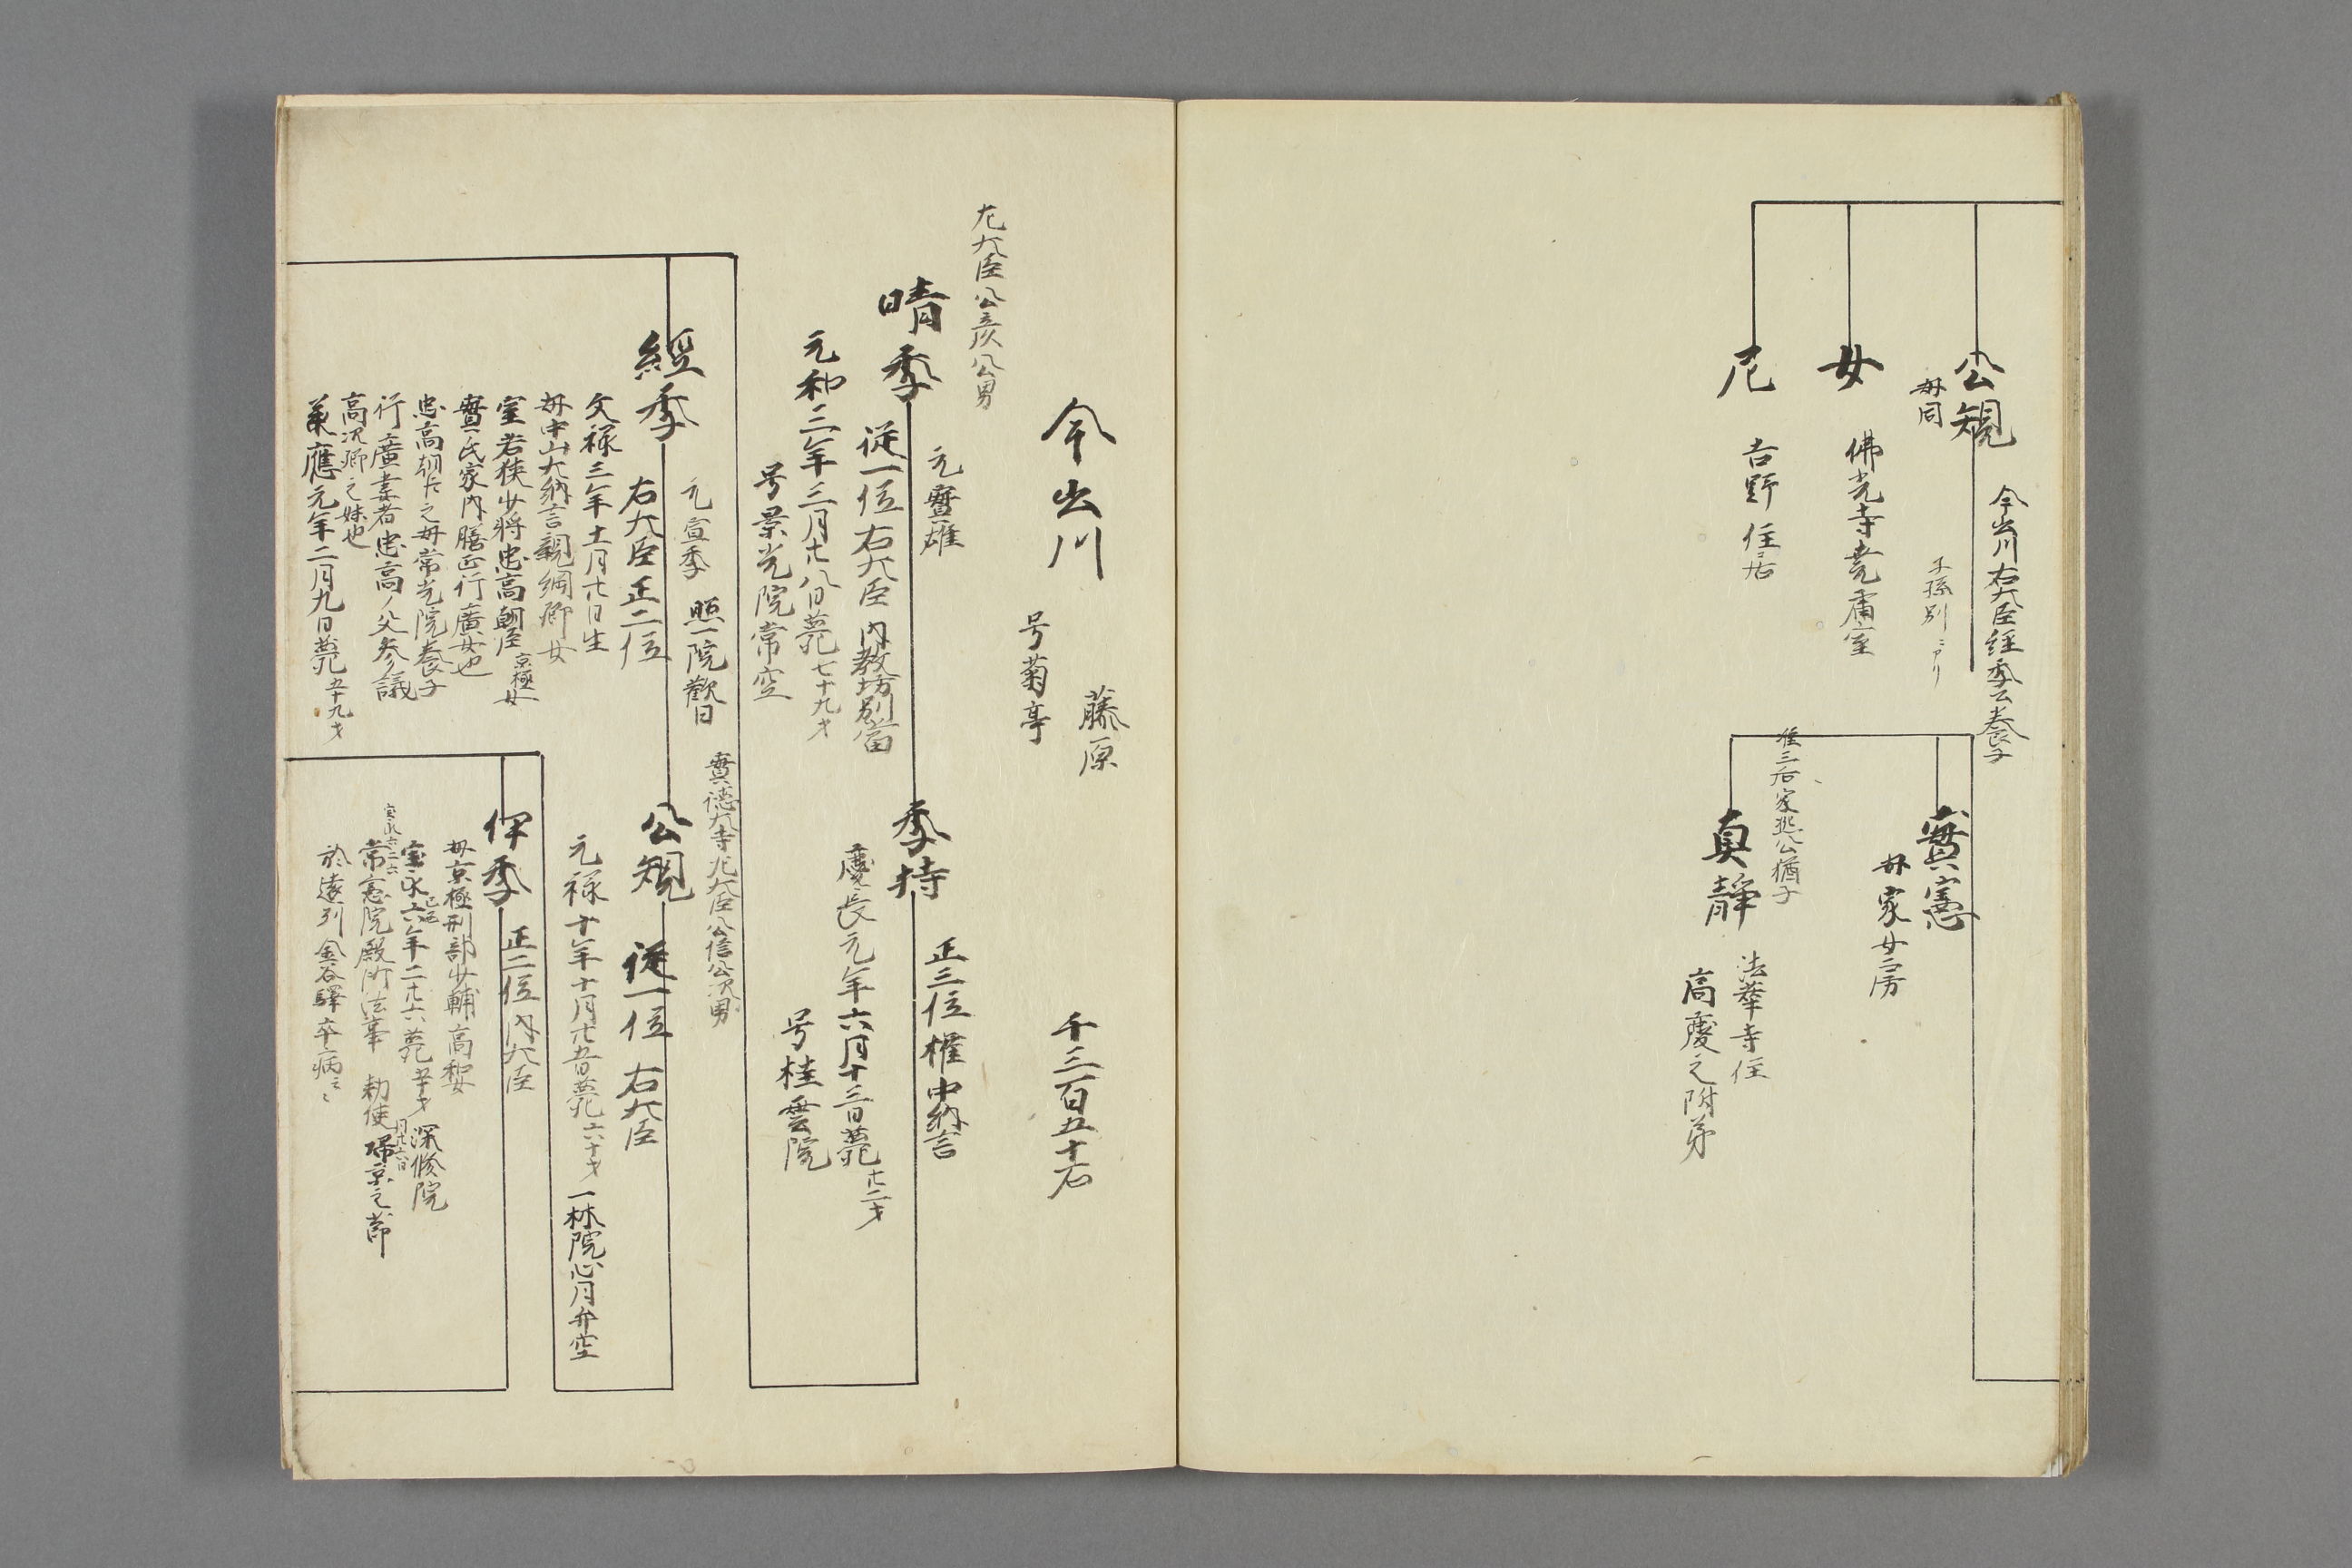 公規
母同
今出川右大臣経季公養子
子孫別ニアリ
女
佛光寺堯庸室
尼
吉野ニ住居
實憲
母家女房
真静
准三后家凞公猶子
法華寺住
高慶之附弟
今出川
号菊亭
藤原
千三百五十石
左大臣公彦公男
晴季
元實維
従一位右大臣内教坊別當
元和三年三月廿八日薨七十九才
号景光院常空
季持
正三位権中納言
慶長元年六月十三日薨廿二才
号桂雲院
經季
元宣季
照一院歡日
右大臣正二位
文禄三年十一月廿日生
母中山大納言親綱卿女
室若狭少将忠高朝臣京極女
實氏家内膳正行廣女也
忠高朝臣之母常光院養子
行廣妻者忠高ノ父参議
高次卿之妹也
承應元年二月九日薨五十九才
公規
實徳大寺左大臣公信公次男
従一位右大臣
元禄十年十月廿五日薨六十才
一林院心月弁空
伊季
正二位内大臣
母京極刑部少輔高和女
宝永六己丑年二廿六薨五十才
深修院
常憲院殿御法事
勅使
帰京之節
於遠列金谷驛卒病云々